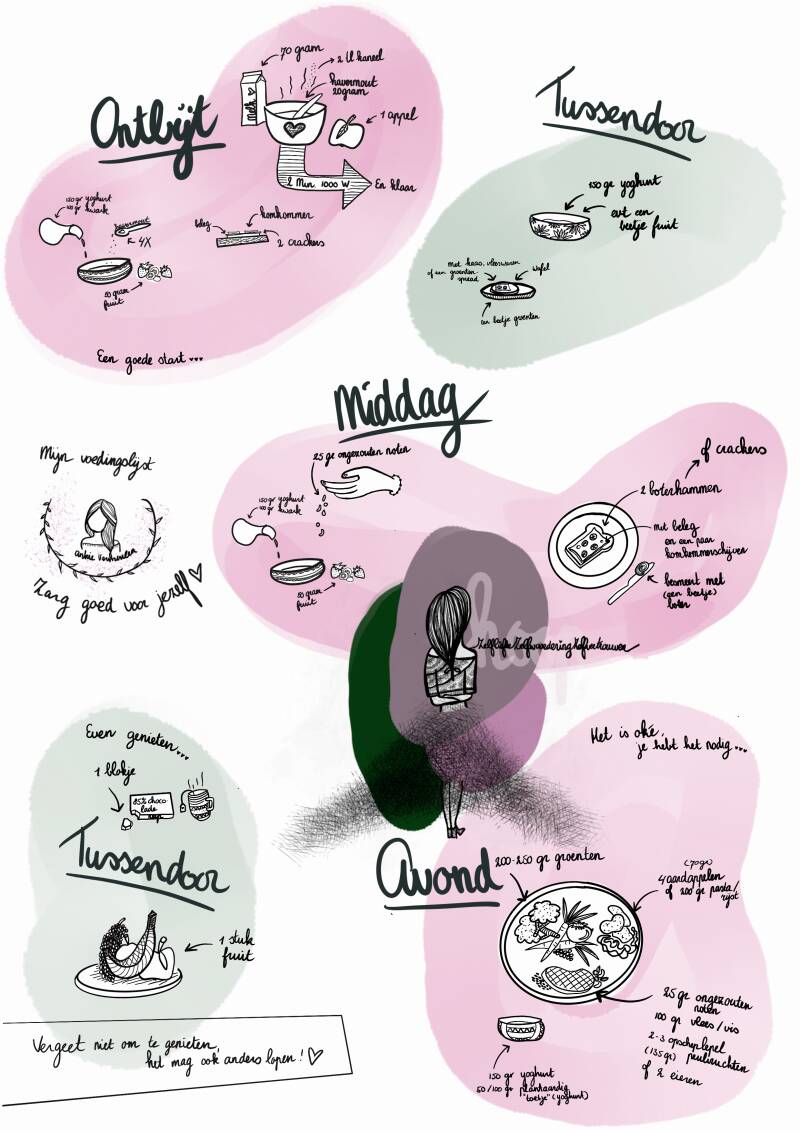 Ontbijt
70 gram
2 tl kaneel
havermout
20gram
Melk
1 appel
2 Min. 1000 W
En klaar
150 gr yoghurt
100 gr kwark
havermout
4X
50 gram
fruit
beleg
komkommer
2 crackers
Een goede start
Tussendoor
150 gr yoghurt
evt een
beetje fruit
met kaas, vleeswaren
of een groenten-
spread
wafel
een beetje groenten
Middag
25 gr ongezouten noten
150 gr yoghurt
100 gr kwark
50 gram
fruit
of crackers
2 boterhammen
met beleg
en een paar
komkommerschijven
besmeert met
(een beetje)
boter
Mijn voedingslijst
Zorg goed voor jezelf
Zelfliefde Zelfwaardering Zelfvertrouwen
Even genieten...
1 blokje
85% choco-
lade
Tussendoor
1 stuk
fruit
Vergeet niet om te genieten,
het mag ook anders lopen!
Het is oké,
je hebt het nodig...
Avond
200-250 gr groenten
(70gr)
4 aardappelen
of 200 gr pasta/
rijst
25 gr ongezouten
noten
100 gr vlees/vis
2-3 opscheplepel
(135gr) peulvruchten
of 2 eieren
150 gr yoghurt
50/100 gr plantaardig
"toetje" (yoghurt)